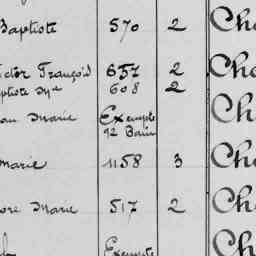 Baptiste 570 2 Cha
ctor François 657 2 Cha
ptiste Mie 608 2
an Marie Exempté Cha
92 Bain
Marie 1158 3 Cha
ore Marie 517 2 Cha
Exempte Cha